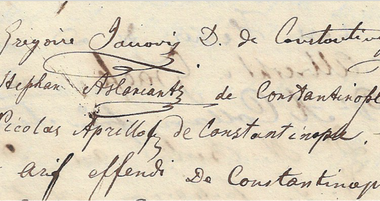 Gregoire Janovis D. de Constantin
Stephan Aslaniantz de Constantinopl
Nicolas Aprilloff de Constantinople.
arif effendi De Constantinop